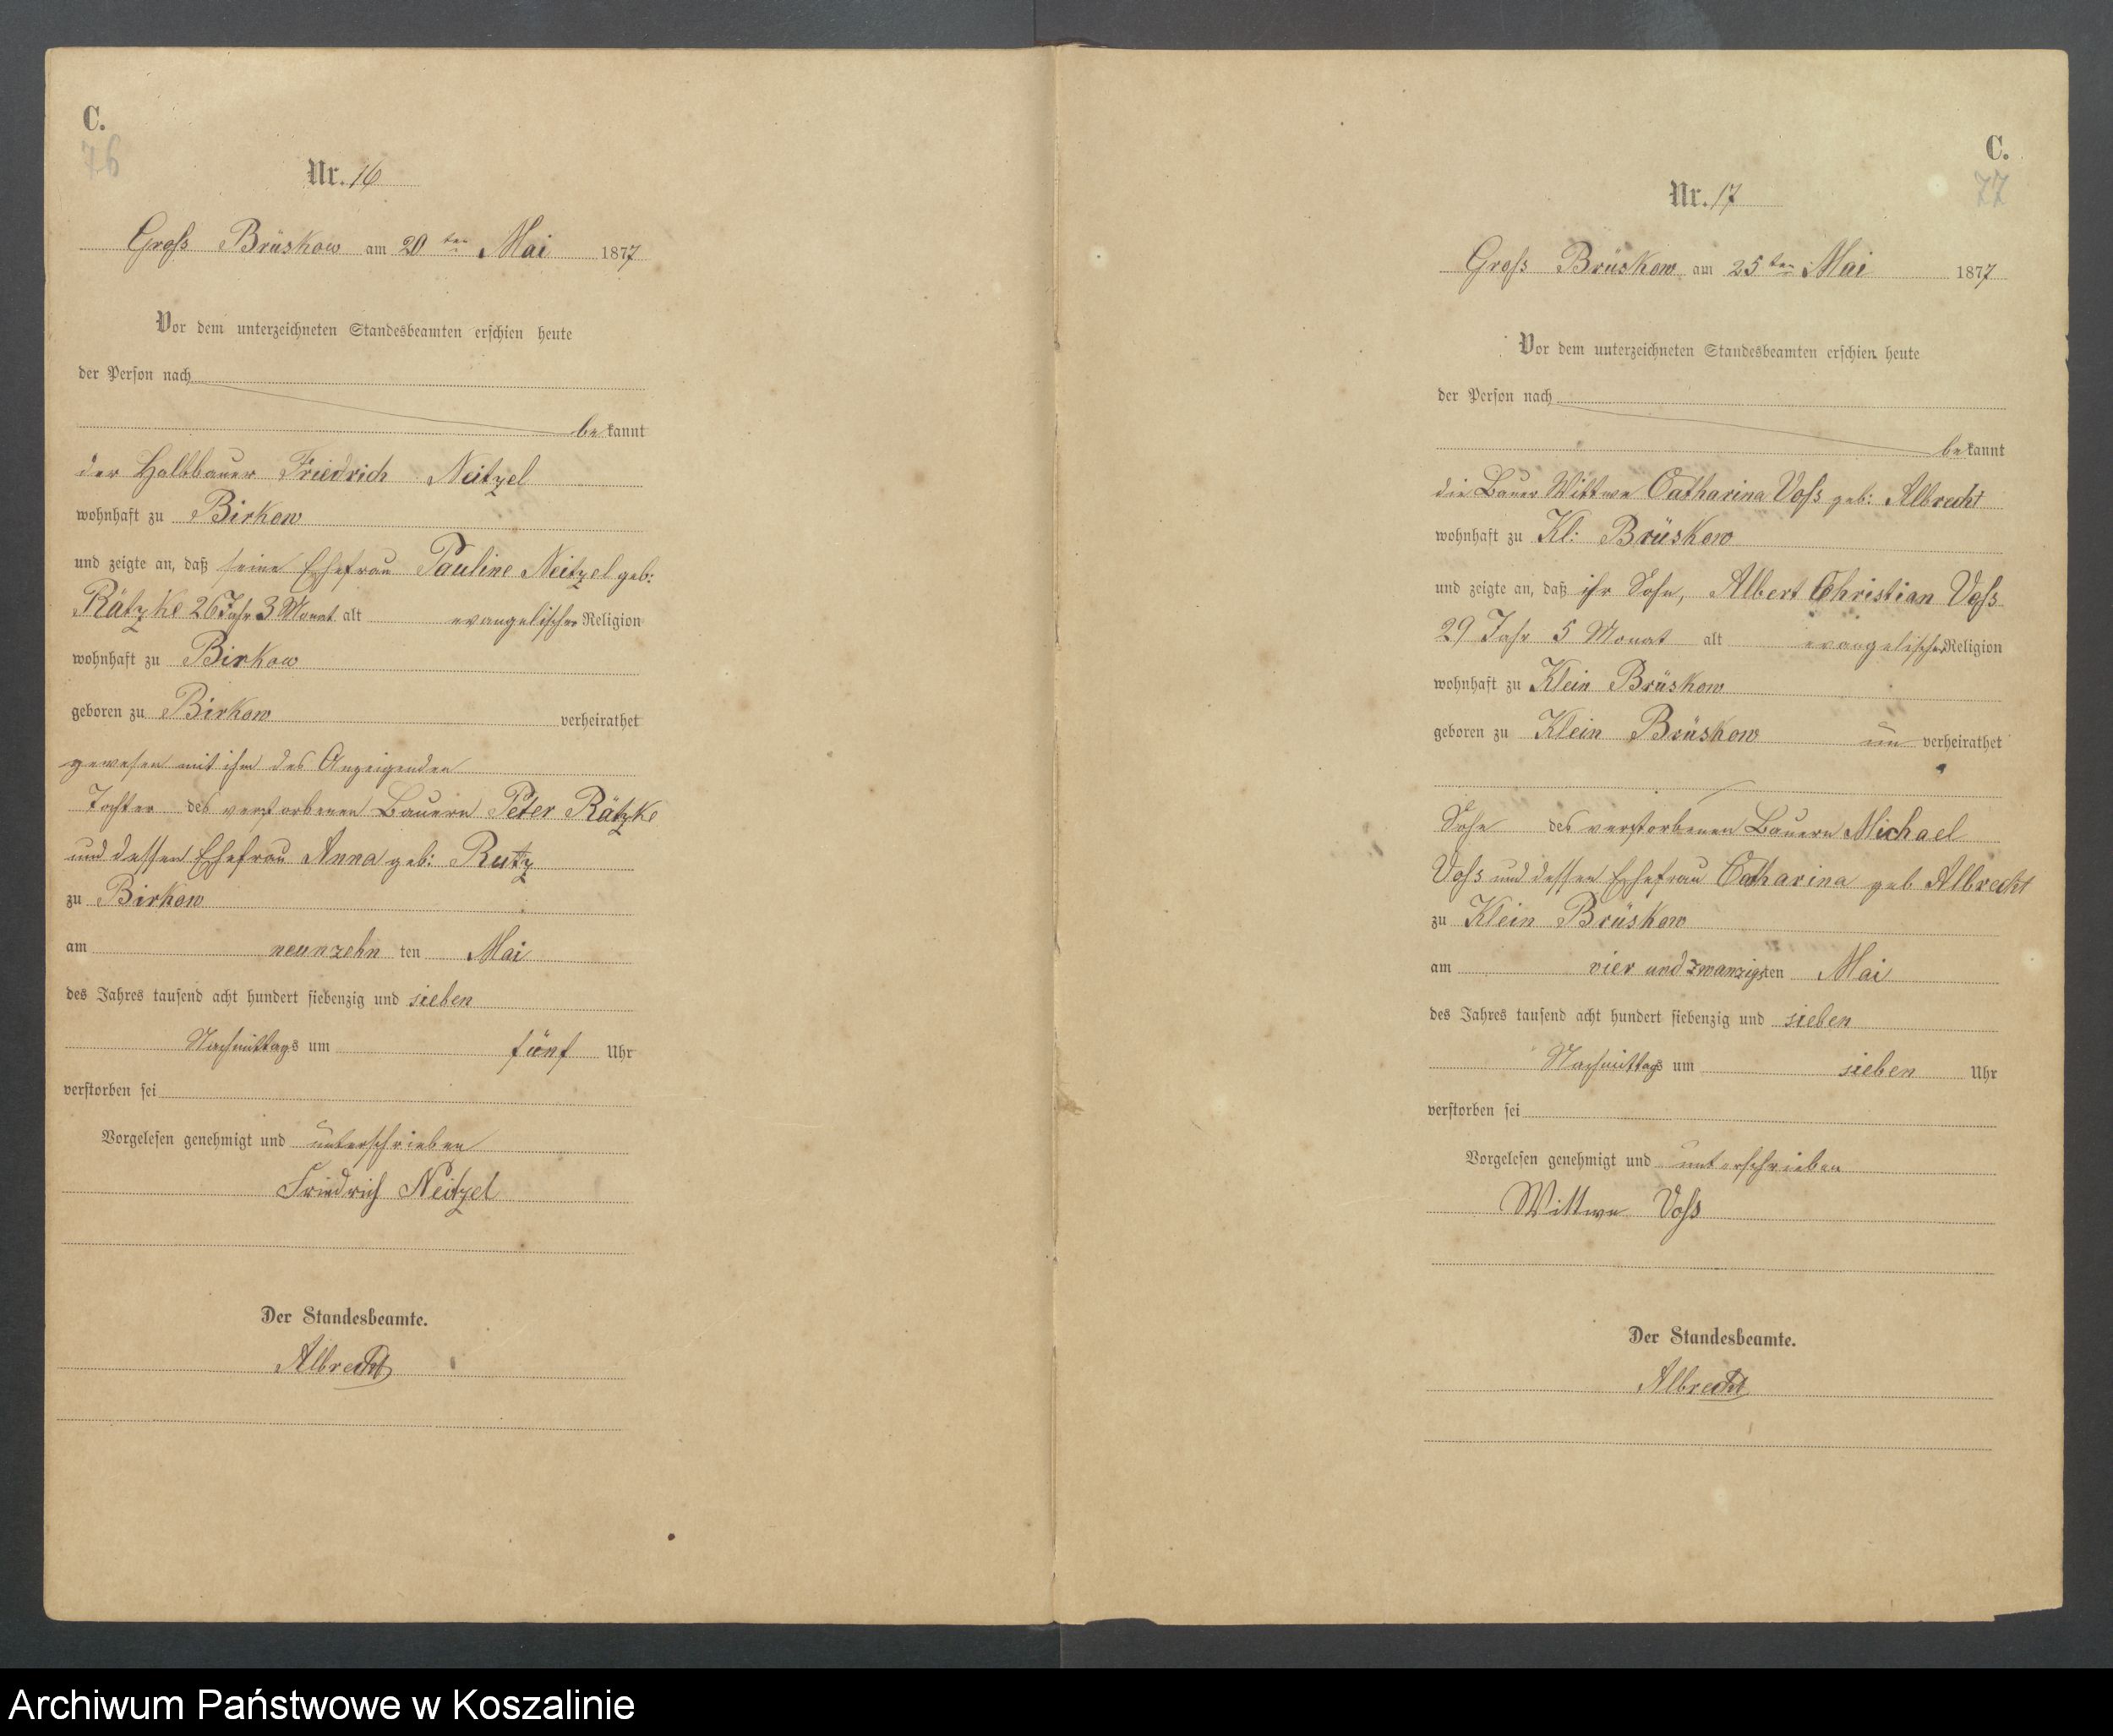 C.
76
Nr. 16
Gross Brüskow am 20ten Mai 1877
Vor dem unterzeichneten Standesbeamten erschien heute
der Person nach
bekannt
der Halbbauer Friedrich Neitzel
wohnhaft zu Birkow
und zeigte an, daß seine Ehefrau Pauline Neitzel geb:
Rätzke 26 Jahr 3 Monat alt evangelischer Religion
wohnhaft zu Birkow
geboren zu Birkow verheirathet
gewesen mit ihm des Anzeigenden
Tochter des verstorbenen Bauern Peter Rätzke
und dessen Ehefrau Anna geb: Rutz
zu Birkow
am neunzehn ten Mai
des Jahres tausend acht hundert siebenzig und sieben
Nachmittags um fünf Uhr
verstorben sei
Vorgelesen genehmigt und unterschrieben
Friedrich Neitzel
Der Standesbeamte.
Albrecht
C.
77
Nr. 17
Gross Brüskow am 25ten Mai 1877
Vor dem unterzeichneten Standesbeamten erschien heute
der Person nach
bekannt
die Bauer Wittwe Catharina Voss geb: Albrecht
wohnhaft zu Kl: Brüskow
und zeigte an, daß ihr Sohn, Albert Christian Voss
29 Jahr 5 Monat alt evangelischer Religion
wohnhaft zu Klein Brüskow
geboren zu Klein Brüskow un verheirathet
Sohn des verstorbenen Bauern Michael
Voss und dessen Ehefrau Catharina geb Albrecht
zu Klein Brüskow
am vier und zwanzigsten Mai
des Jahres tausend acht hundert siebenzig und sieben
Nachmittags um sieben Uhr
verstorben sei
Vorgelesen genehmigt und unterschrieben
Wittwe Voss
Der Standesbeamte.
Albrecht
Archiwum Państwowe w Koszalinie